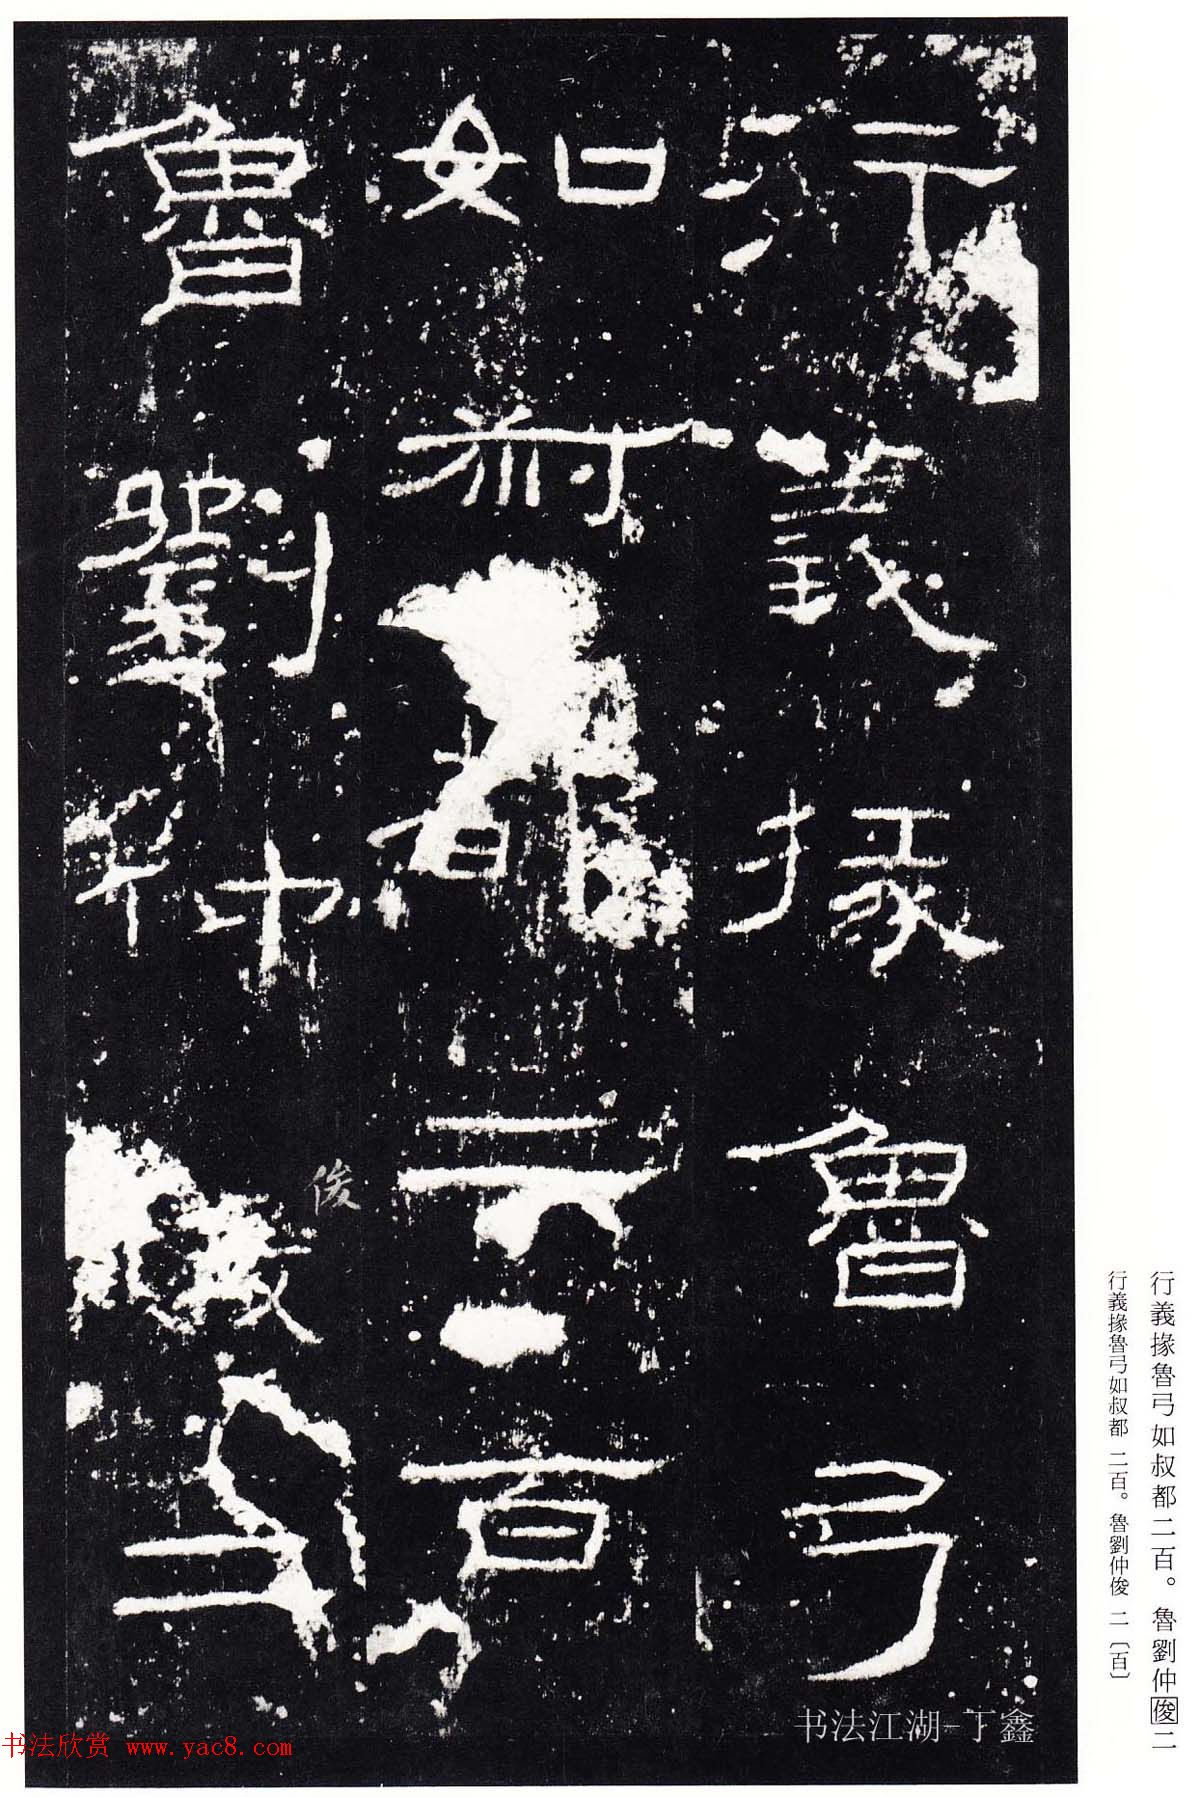 行義掾魯弓
如叔都二百
魯劉仲俊二
俊
行義掾魯弓如叔都二百。魯劉仲俊二
行義掾魯弓如叔都 二百。魯劉仲俊 二〔百〕
书法江湖-丁鑫
书法欣赏 www.yac8.com